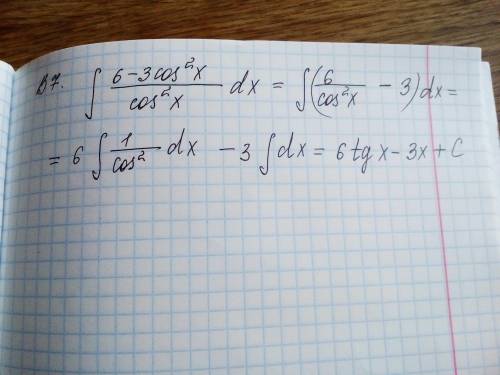 В7. ∫ (6-3cos²x)/(cos²x) dx = ∫(6/(cos²x) - 3)dx =
= 6 ∫ 1/(cos²) dx - 3 ∫ dx = 6 tg x - 3x + C